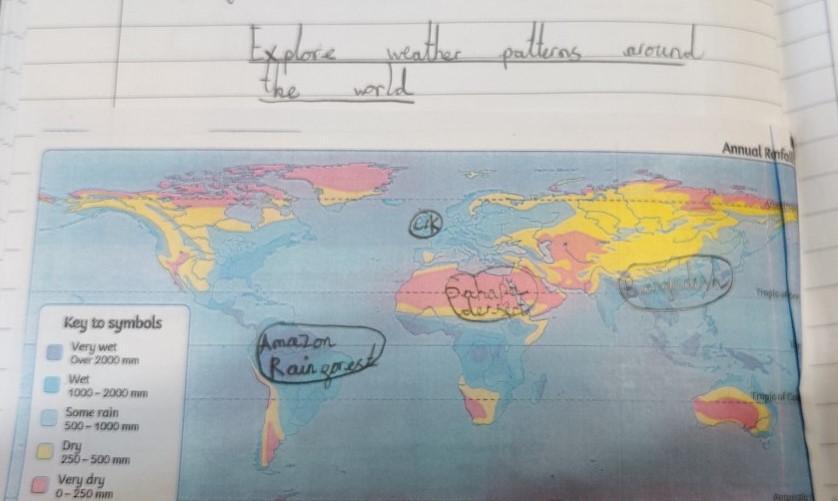 Explore weather patterns around
the world
Annual Rainfall
UK
Bangladesh
Amazon
Rain forest
Key to symbols
Very wet
Over 2000 mm
Wet
1000 – 2000 mm
Some rain
500 – 1000 mm
Dry
250 – 500 mm
Very dry
0 – 250 mm
Tropic of